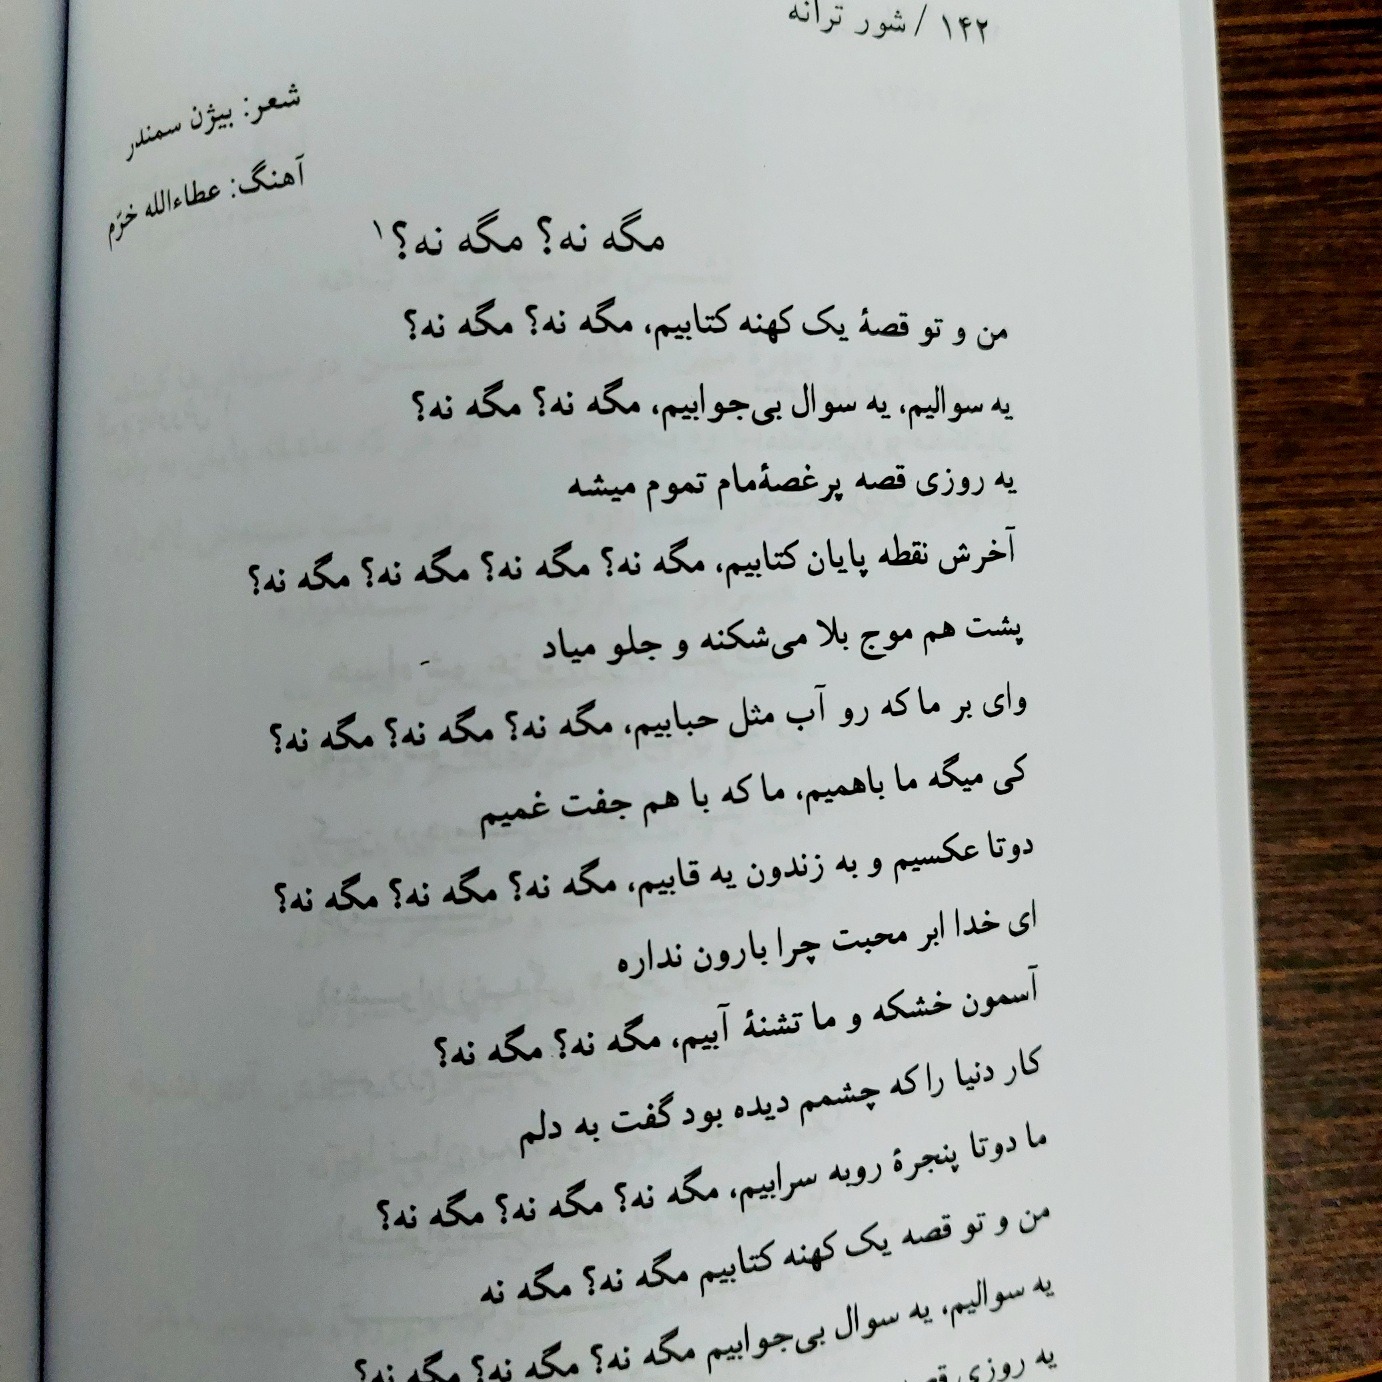 ۱۴۲ / شور ترانه
شعر: بیژن سمندر
آهنگ: عطاءالله خرّم
مگه نه؟ مگه نه؟۱
من و تو قصهٔ یک کهنه کتابیم، مگه نه؟ مگه نه؟
یه سوالیم، یه سوال بی‌جوابیم، مگه نه؟ مگه نه؟
یه روزی قصه پرغصهٔ‌مام تموم میشه
آخرش نقطه پایان کتابیم، مگه نه؟ مگه نه؟ مگه نه؟ مگه نه؟
پشت هم موج بلا می‌شکنه و جلو میاد
وای بر ما که رو آب مثل حبابیم، مگه نه؟ مگه نه؟ مگه نه؟
کی میگه ما باهمیم، ما که با هم جفت غمیم
دوتا عکسیم و به زندون یه قابیم، مگه نه؟ مگه نه؟ مگه نه؟
ای خدا ابر محبت چرا بارون نداره
آسمون خشکه و ما تشنهٔ آبیم، مگه نه؟ مگه نه؟
کار دنیا را که چشمم دیده بود گفت به دلم
ما دوتا پنجرهٔ روبه سرابیم، مگه نه؟ مگه نه؟ مگه نه؟
من و تو قصه یک کهنه کتابیم مگه نه؟ مگه نه
یه سوالیم، یه سوال بی‌جوابیم مگه نه؟ مگه نه؟ مگه نه؟
یه روزی